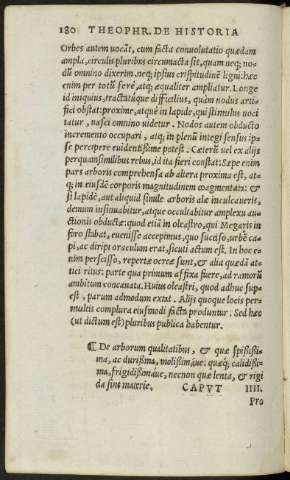 180 THEOPHR. DE HISTORIA
Orbes autem uocāt, cum facta conuolutatio quædam
ampla, circulis pluribus circumacta sit, quam neq; no-
dū omnino dixerim, neq; ipsius crispitudinē ligni: hæc
enim per totū ferè, atq; æqualiter ampliatur. Longe
id iniquius, tractatúque difficilius, quàm nodus arti
fici obstat: proxime, atque in lapide, qui stimulus uoci
tatur, nasci omnino uidetur. Nodos autem obducto
incremento occupari, atq; in plenū integi sensus ip-
se percipere euidentissime potest. Cæterū uel ex alijs
per quam similibus rebus, id ita fieri constat: sæpe enim
pars arboris comprehensa ab altera proxima est, at-
q; in eiusdē corporis magnitudinem coagmentata: &
si lapidē, aut aliquid simile arboris alæ inculcaueris,
demum insinuabitur, atque occultabitur amplexu au-
ctionis obductæ: quod etiā in oleastro, qui Megaris in
foro stabat, euenisse accepimus, quo succiso, urbē ca-
pi, ac diripi oraculum erat, sicuti actum est. In hoc e-
nim perscisso, repertæ ocreæ sunt, & alia quædā at-
tici ritus: parte qua primum affixa fuere, ad ramorū
ambitum concauata. Huius oleastri, quod adhuc supe
est, parum admodum extat. Alijs quoque locis per-
multis complura eiusmodi facta produntur. Sed hæc
(ut dictum est) pluribus publica habentur.
¶ De arborum qualitatibus, & quæ spississi-
ma, ac durissima, molissimáue: quæq; calidissi-
ma, frigidissimáue, necnon quæ lenta, & rigi
da sint materie. CAPVT IIII.
Pro